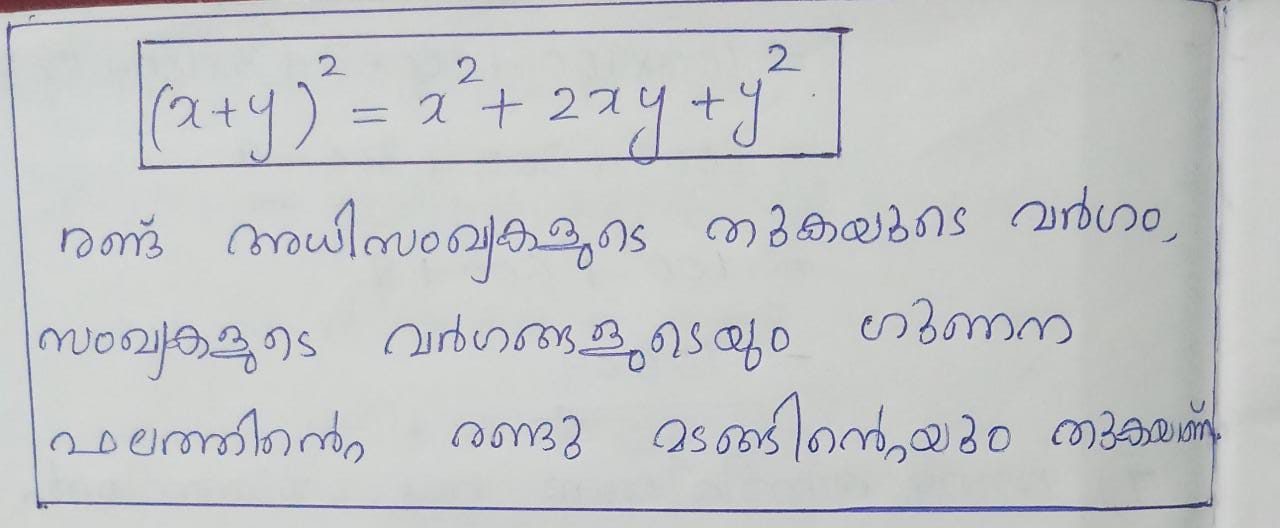 (x+y)² = x² + 2xy + y²
രണ്ട് അധിസംഖ്യകളുടെ തുകയുടെ വർഗം,
സംഖ്യകളുടെ വർഗങ്ങളുടെയും ഗുണന
ഫലത്തിന്റെ രണ്ടു മടങ്ങിന്റെയും തുകയാണ്.